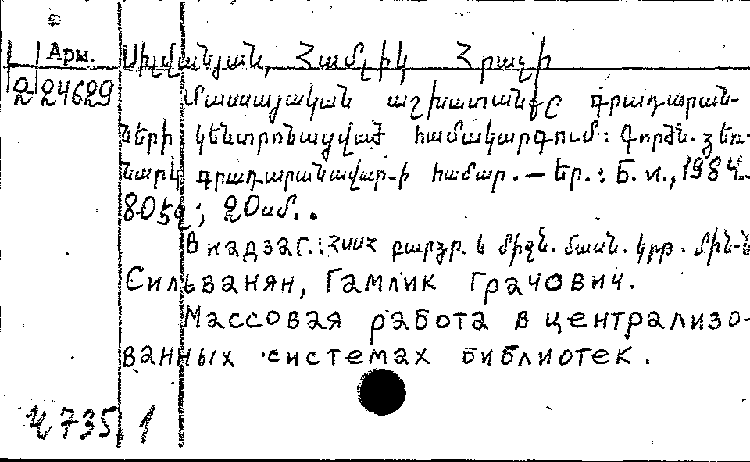 Арм. Սիլվանյան, Համլիկ Հրաչի
2 24629 Մասսայական աշխատանքը գրադարան-
ների կենտրոնացված համակարգում: Գործն. ձեռ-
նարկ գրադարանավար-ի համար. – Եր.: Б. и., 1984.
80 էջ; 20 սմ..
В надзаг.: ՀՍՍՀ բարձր. և միջն. մասն. կրթ. մին-ն
Сильванян, Гамлик Грачович.
Массовая работа в централизо-
ванных системах библиотек.
Ч 735 1